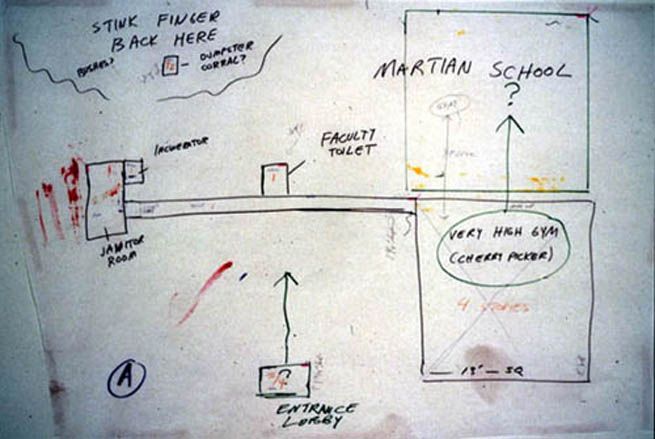 STINK FINGER
BACK HERE
BUSHES?
1/2
DUMPSTER
CORRAL?
MARTIAN SCHOOL
?
GYM
INCINERATOR
FACULTY
TOILET
1
JANITOR
ROOM
VERY HIGH GYM
(CHERRY PICKER)
4 STORIES
13' SQ
A
ENTRANCE
LOBBY